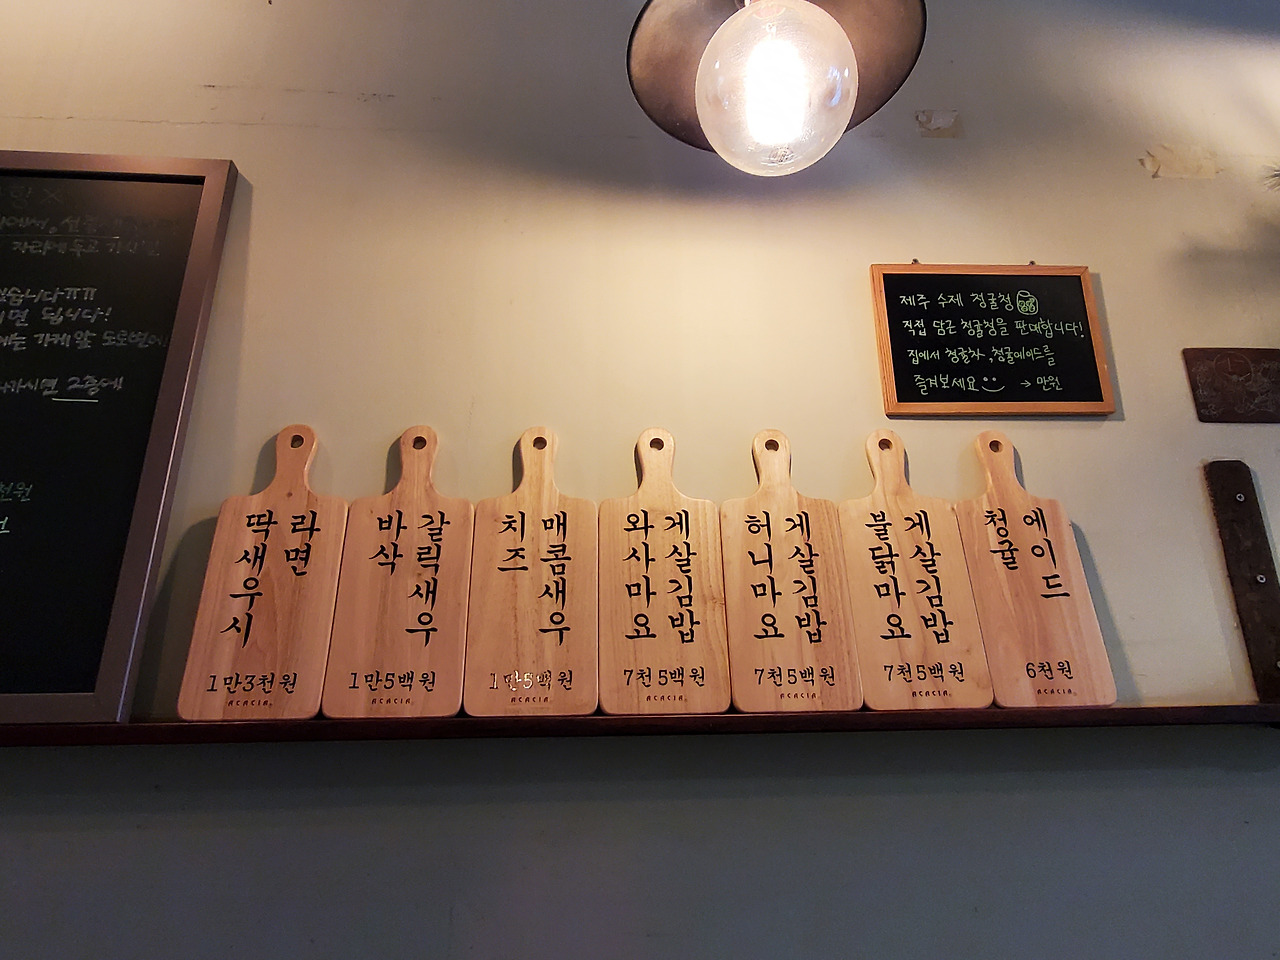 자리에 두고
습니다ㅠㅠ
면 됩니다!
는 가게 앞 도로변에
가시면 2층에
천원
제주 수제 청귤청
직접 담근 청귤청을 판매합니다!
집에서 청귤차, 청귤에이드를
즐겨보세요 → 만원
딱새우시
라면
1만3천원
ACACIA
바삭
갈릭새우
1만5백원
ACACIA
치즈
매콤새우
1만5백원
ACACIA
와사마요
게살김밥
7천5백원
ACACIA
허니마요
게살김밥
7천5백원
ACACIA
불닭마요
게살김밥
7천5백원
ACACIA
청귤
에이드
6천원
ACACIA